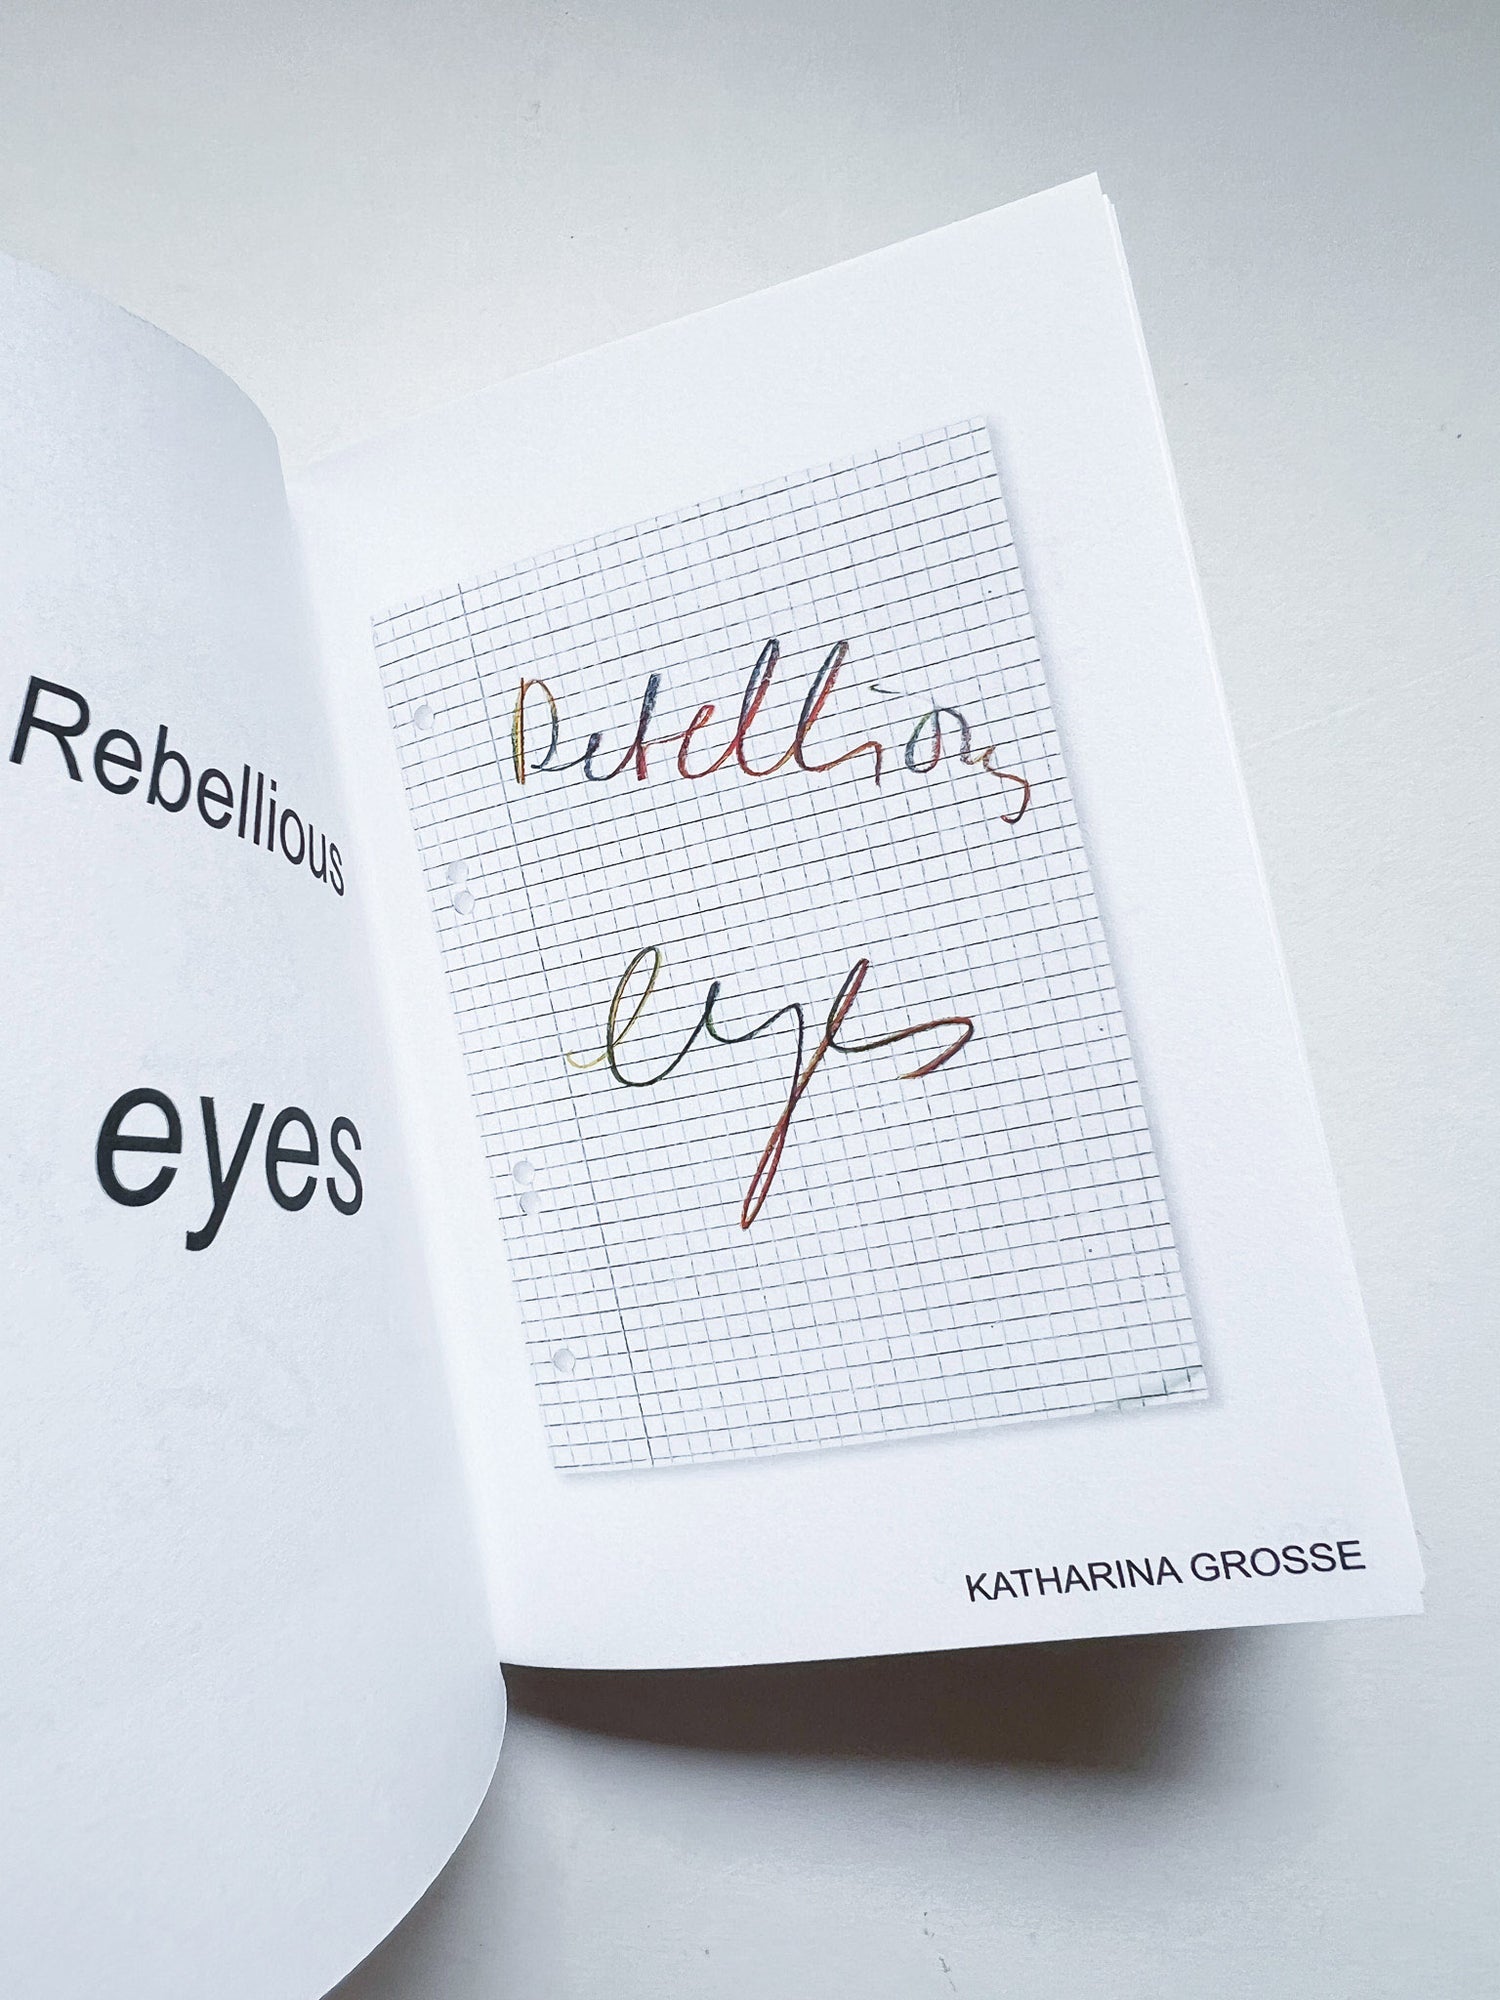 Rebellious
eyes
Rebellious
eyes
KATHARINA GROSSE